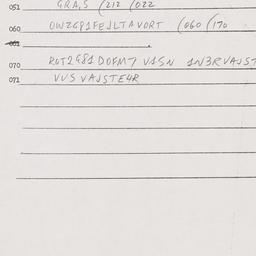 051 GRA,S (212 (022
060 OWZG81FEJLTAVORT (060 (170
061
070 ROT2G81DOFM7 V1SN 1N3RVAJST
071 VVS VAJSTE4R